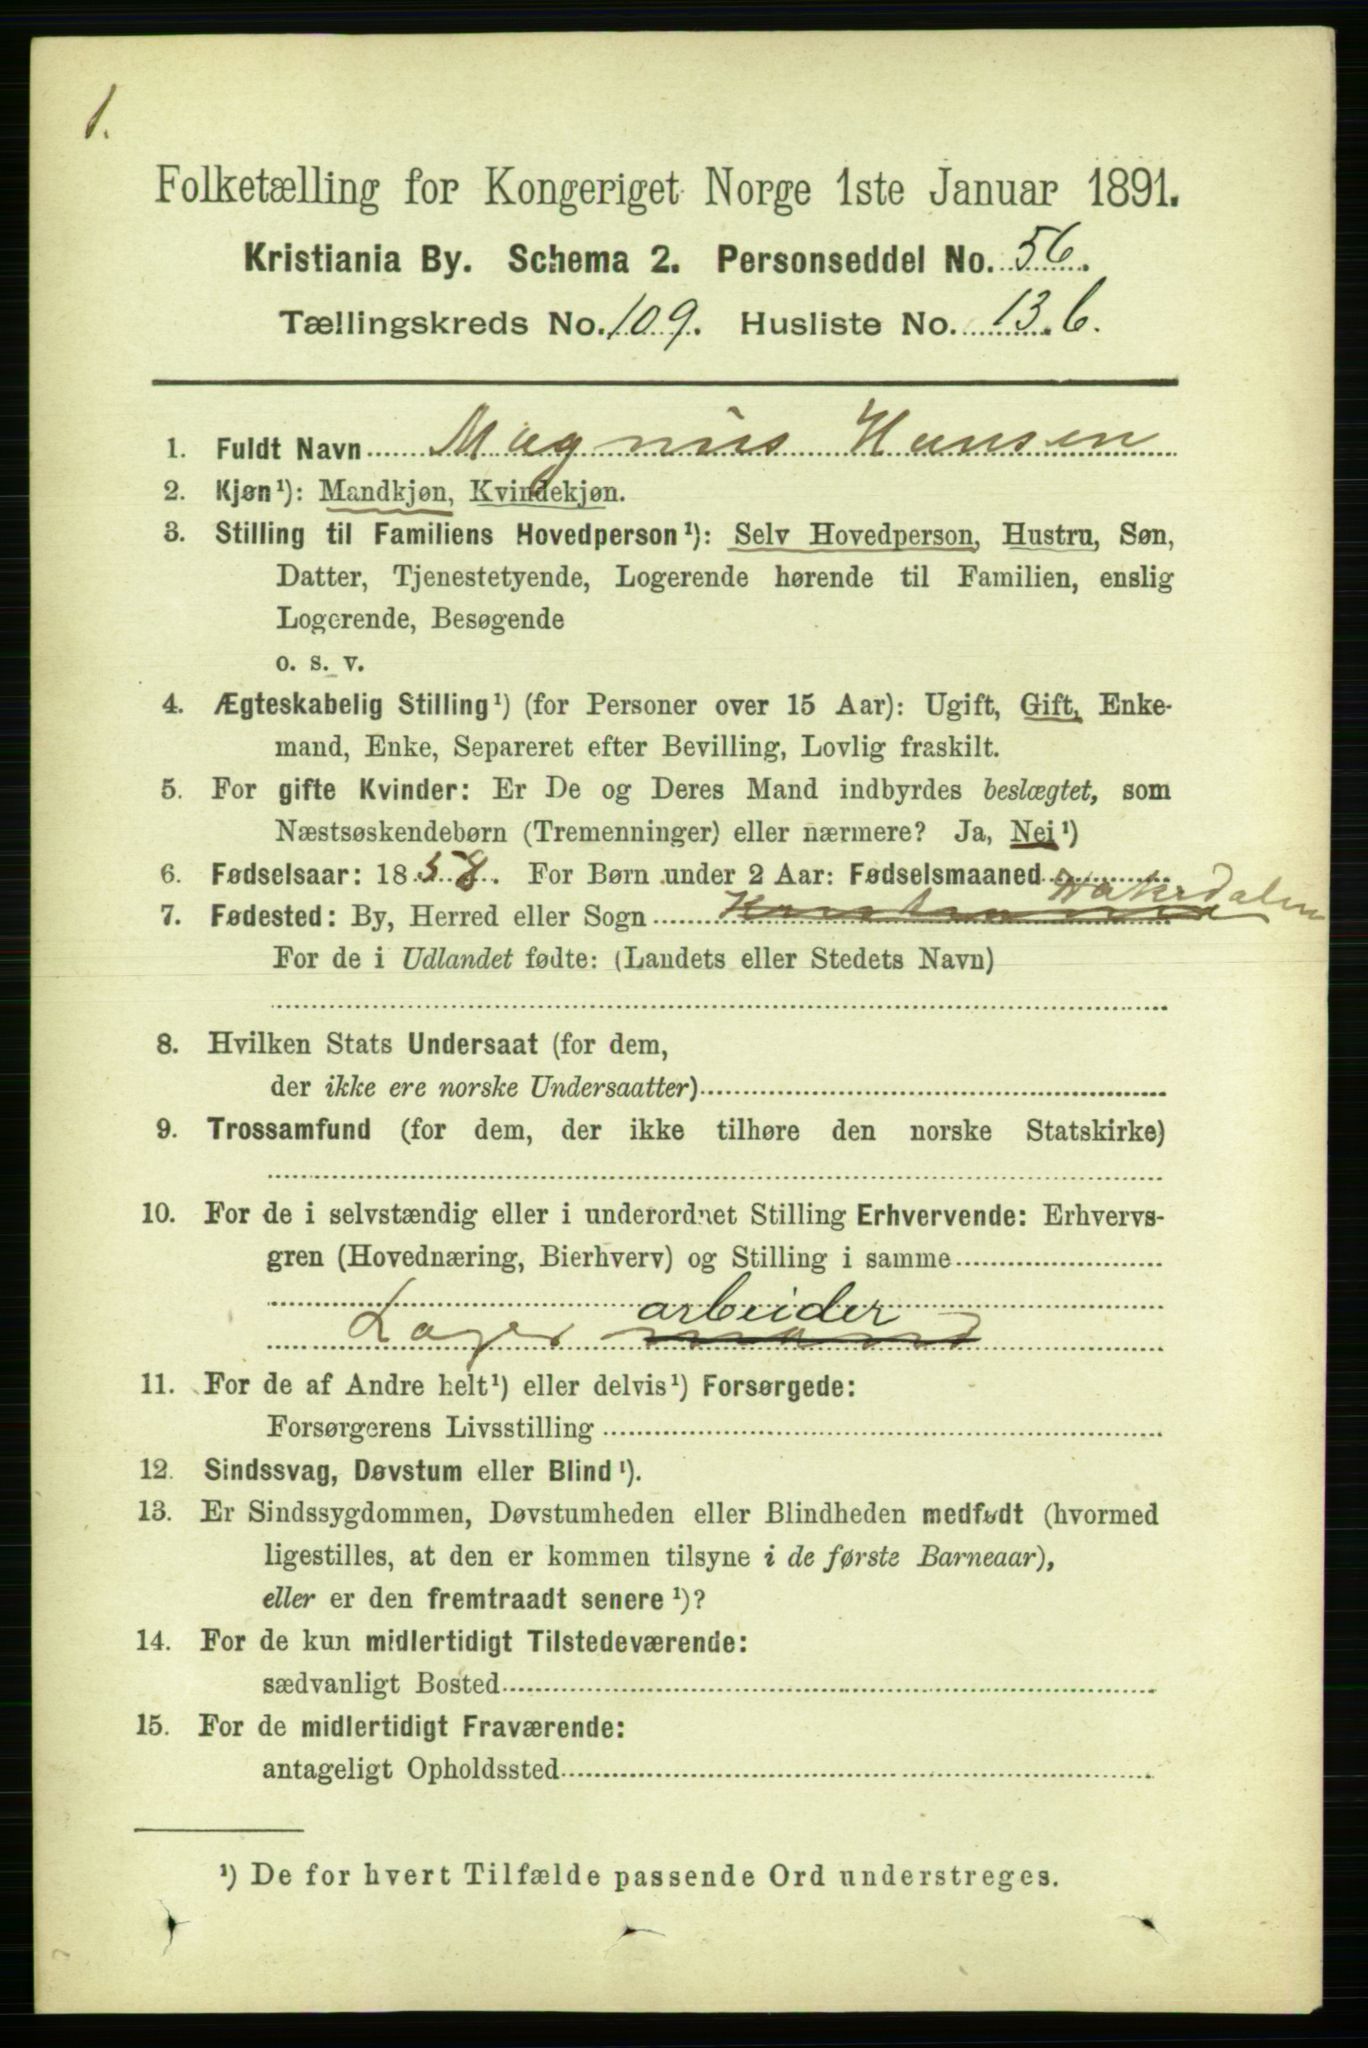 1.
Folketælling for Kongeriget Norge 1ste Januar 1891.
Kristiania By. Schema 2. Personseddel No. 56.
Tællingskreds No. 109. Husliste No. 13.6.
1. Fuldt Navn Magnus Hansen
2. Kjøn¹): Mandkjøn, Kvindekjøn.
3. Stilling til Familiens Hovedperson¹): Selv Hovedperson, Hustru, Søn,
Datter, Tjenestetyende, Logerende hørende til Familien, enslig
Logerende, Besøgende
o. s. v.
4. Ægteskabelig Stilling¹) (for Personer over 15 Aar): Ugift, Gift, Enke-
mand, Enke, Separeret efter Bevilling, Lovlig fraskilt.
5. For gifte Kvinder: Er De og Deres Mand indbyrdes beslægtet, som
Næstsøskendebørn (Tremenninger) eller nærmere? Ja, Nei¹)
6. Fødselsaar: 1858. For Børn under 2 Aar: Fødselsmaaned
7. Fødested: By, Herred eller Sogn Kristiania Hakedalen
For de i Udlandet fødte: (Landets eller Stedets Navn)
8. Hvilken Stats Undersaat (for dem,
der ikke ere norske Undersaatter)
9. Trossamfund (for dem, der ikke tilhøre den norske Statskirke)
10. For de i selvstændig eller i underordnet Stilling Erhvervende: Erhvervs-
gren (Hovednæring, Bierhverv) og Stilling i samme
arbeider
Lager mand
11. For de af Andre helt¹) eller delvis¹) Forsørgede:
Forsørgerens Livsstilling
12. Sindssvag, Døvstum eller Blind¹).
13. Er Sindssygdommen, Døvstumheden eller Blindheden medfødt (hvormed
ligestilles, at den er kommen tilsyne i de første Barneaar),
eller er den fremtraadt senere¹)?
14. For de kun midlertidigt Tilstedeværende:
sædvanligt Bosted
15. For de midlertidigt Fraværende:
antageligt Opholdssted
¹) De for hvert Tilfælde passende Ord understreges.